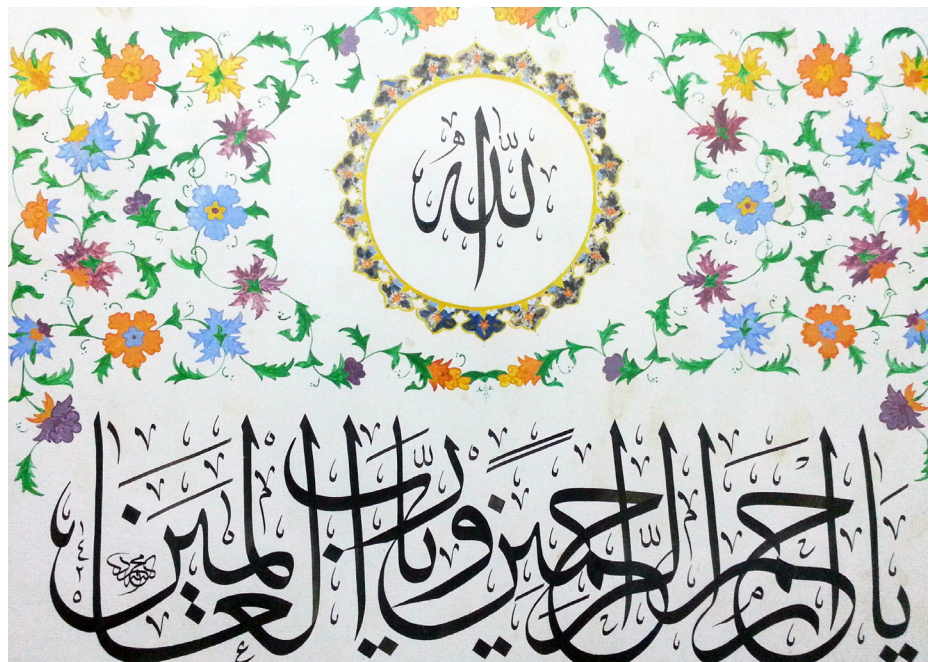 الله
يا أرحم الراحمين ويا رب العالمين